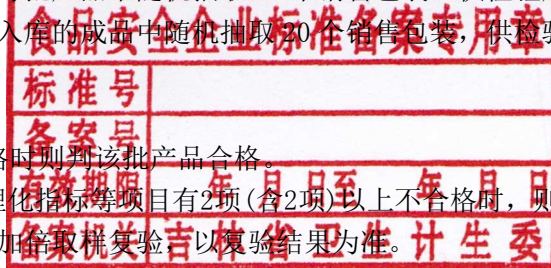 入库的成品中随机抽取20个销售包装，供检验
食品安全企业标准备案专用章
标准号
备案号
格时则判该批产品合格。
有效期限 年 月 日至 年 月 日
理化指标等项目有2项(含2项)以上不合格时，则
备案机关 吉林省卫生计生委
加倍取样复验，以复验结果为准。